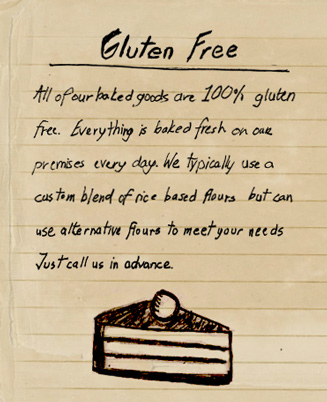 Gluten Free
All of our baked goods are 100% gluten
free. Everything is baked fresh on our
premises every day. We typically use a
custom blend of rice based flours but can
use alternative flours to meet your needs
Just call us in advance.